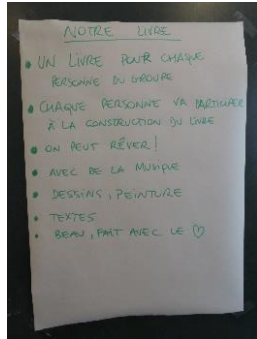 NOTRE LIVRE
• UN LIVRE POUR CHAQUE
PERSONNE DU GROUPE
• CHAQUE PERSONNE VA PARTICIPER
À LA CONSTRUCTION DU LIVRE
• ON PEUT RÊVER!
• AVEC DE LA MUSIQUE
• DESSINS, PEINTURE
• TEXTES
• BEAU, FAIT AVEC LE ♡